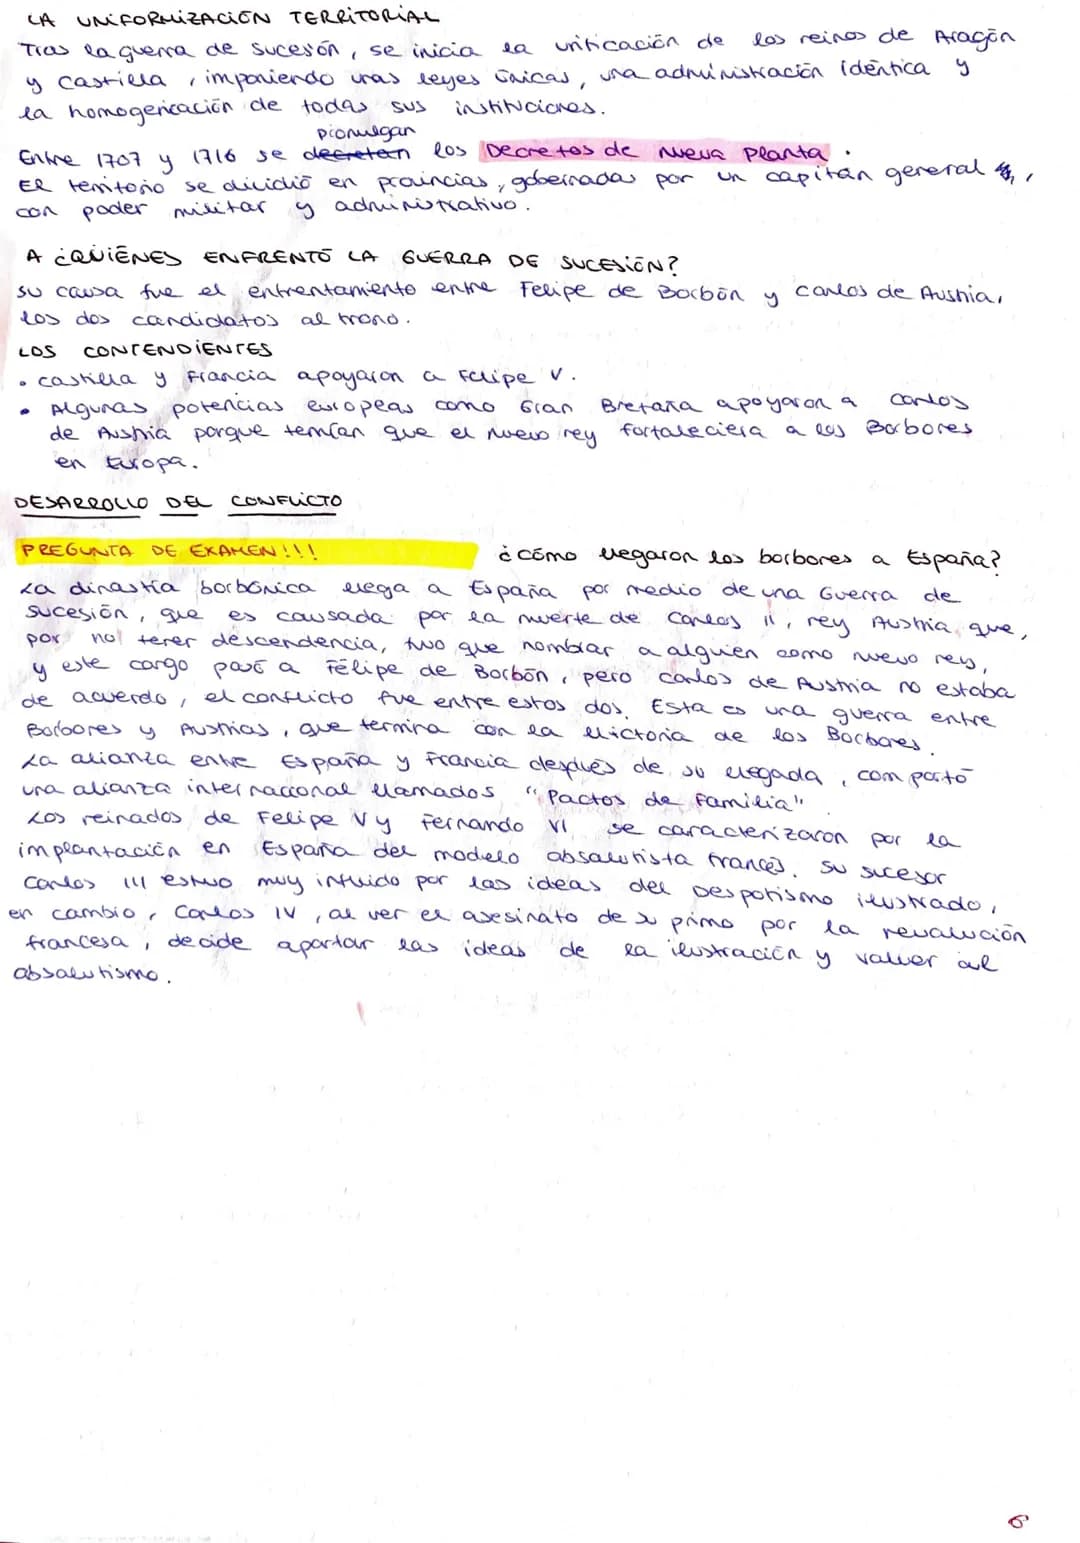 LA UNIFORMIZACIÓN TERRITORIAL
Tras la guerra de sucesón, se inicia la unificación de los reinos de Aragón
y Castilla, imponiendo unas leyes únicas, una administración idéntica y
la homogenicación de todas sus instituciones.
promulgan
Entre 1707 y 1716 se decretan los Decretos de Nueva Planta.
El territorio se dividió en provincias, gobernadas por un capitán general,
con poder militar y administrativo.
A ¿QUIÉNES ENFRENTÓ LA GUERRA DE SUCESIÓN?
su causa fue el enfrentamiento entre Felipe de Borbón y Carlos de Austria,
los dos candidatos al trono.
LOS CONTENDIENTES
• Castilla y Francia apoyaron a Felipe V.
• Algunas potencias europeas como Gran Bretaña apoyaron a Carlos
de Austria porque temían que el nuevo rey fortaleciera a los Borbones
en Europa.
DESARROLLO DEL CONFLICTO
PREGUNTA DE EXAMEN!!! ¿cómo llegaron los borbones a España?
La dinastía borbónica llega a España por medio de una Guerra de
sucesión, que es causada por la muerte de Carlos II, rey Austria, que,
por no tener descendencia, tuvo que nombrar a alguien como nuevo rey,
y este cargo pasó a Felipe de Borbón, pero Carlos de Austria no estaba
de acuerdo, el conflicto fue entre estos dos. Esta es una guerra entre
Borbones y Austrias, que termina con la victoria de los Borbones.
La alianza entre España y Francia después de su llegada, comportó
una alianza internacional llamados "Pactos de Familia"
Los reinados de Felipe V y Fernando VI se caracterizaron por la
implantación en España del modelo absolutista francés. Su sucesor
Carlos III estuvo muy influido por las ideas del Despotismo ilustrado,
en cambio, Carlos IV, al ver el asesinato de su primo por la revolución
francesa, decide apartar las ideas de la ilustración y volver al
absolutismo.